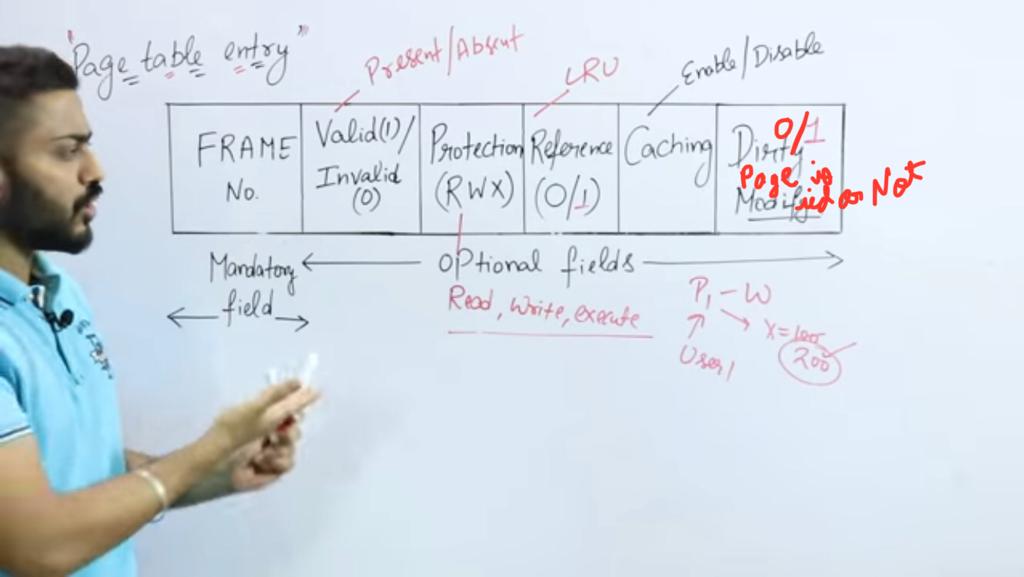 "Page table entry"
Present/Absent
LRU
Enable/Disable
FRAME No.
Valid(1)/
Invalid
(0)
Protection
(RWX)
Reference
(0/1)
Caching
Dirty
Modify
0/1
Page is
ied or Not
Mandatory
field
Optional fields
Read, Write, execute
P1 - W
X=100
200
User1